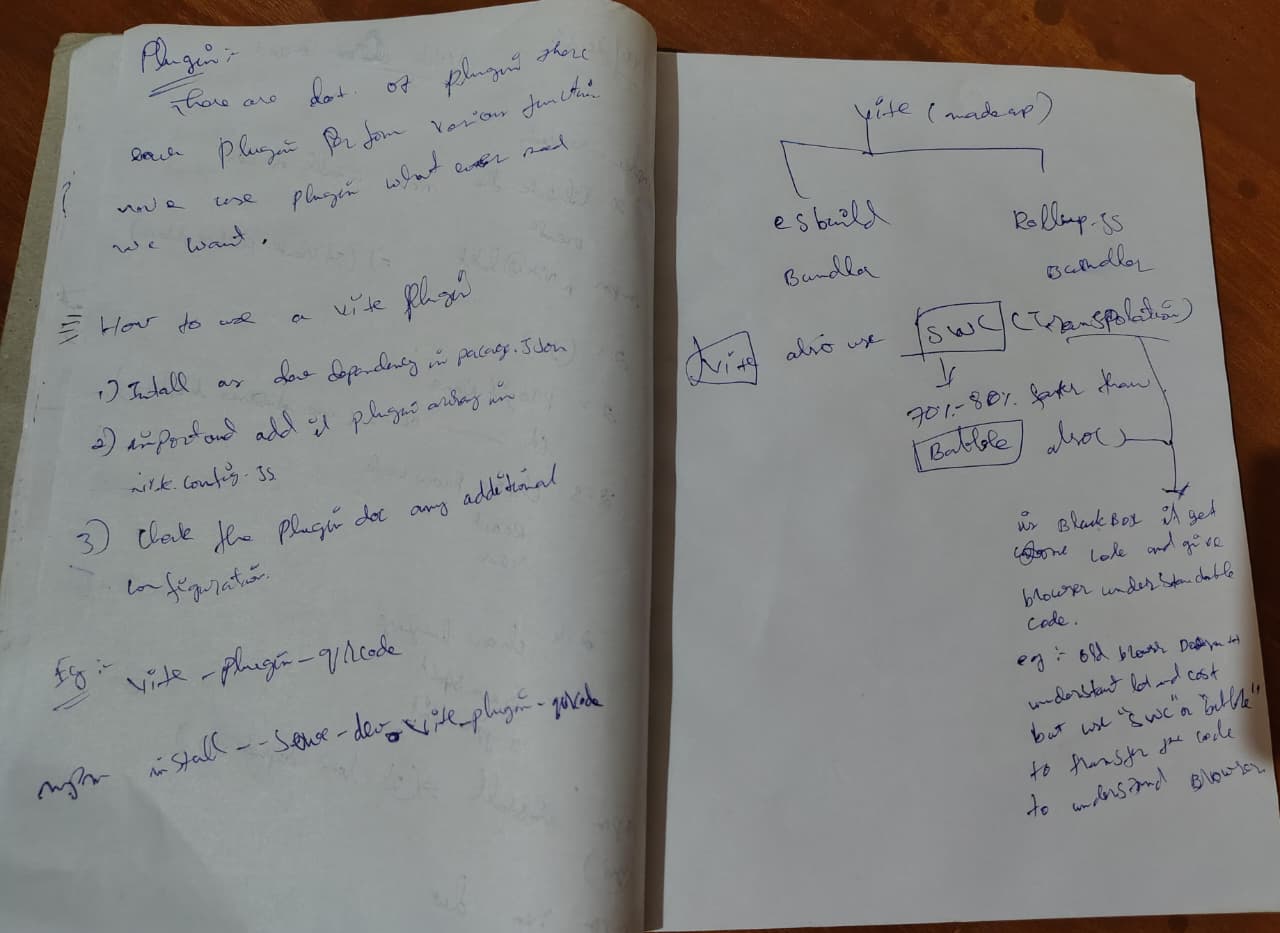 Plugin :-
There are lot of plugin there
each plugin perform various function
we use plugin what ever need
we want.
How to use a vite plugin
1) Install as dev dependency in package.Json
2) import and add it plugin array in
vite.config.js
3) Check the plugin doc any additional
configuration.
Eg :- vite-plugin-qrcode
npm install --save-dev vite-plugin-qrcode
vite (made up)
esbuild Rollup.js
Bundler Bundler
Vite also use SWC (Transpolation)
70%-80% faster than
Babble also
is BlackBox it get
code and give
browser understandable
code.
eg :- old browser
understant let and cost
but use "SWC" or "babble"
to transfer the code
to understand Browser